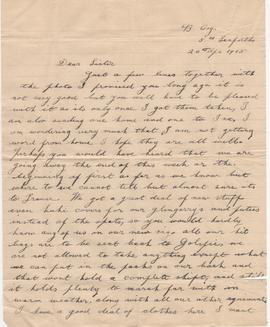 "B" Coy.
5th Seaforths
20 Apr 1915
Dear Sister
Just a few lines together with
the photo I promised you long ago it is
not very good but you will have to be pleased
with it as its only one I got them taken, I
am also sending one home and one to I am
wondering very much that I am not getting
word from home, I hope they are all well
Perhaps you would have heard that we are
going away the end of this week or the
beginning of first as far as we know but
where to we cannot tell but almost sure its
to France. We got a great deal of new stuff
even khaki covers for glengarry's and puttees
instead of the spats, so you would hardly
know any of us in our new rigs all our kit
bags are to be sent back to Golspie, we
are not allowed to take anything except what
we can put in the packs on our back and
that wont hold a complete shift, and
it holds plenty to march far with on
warm weather, along with all our other
I have a good deal of clothes here I must